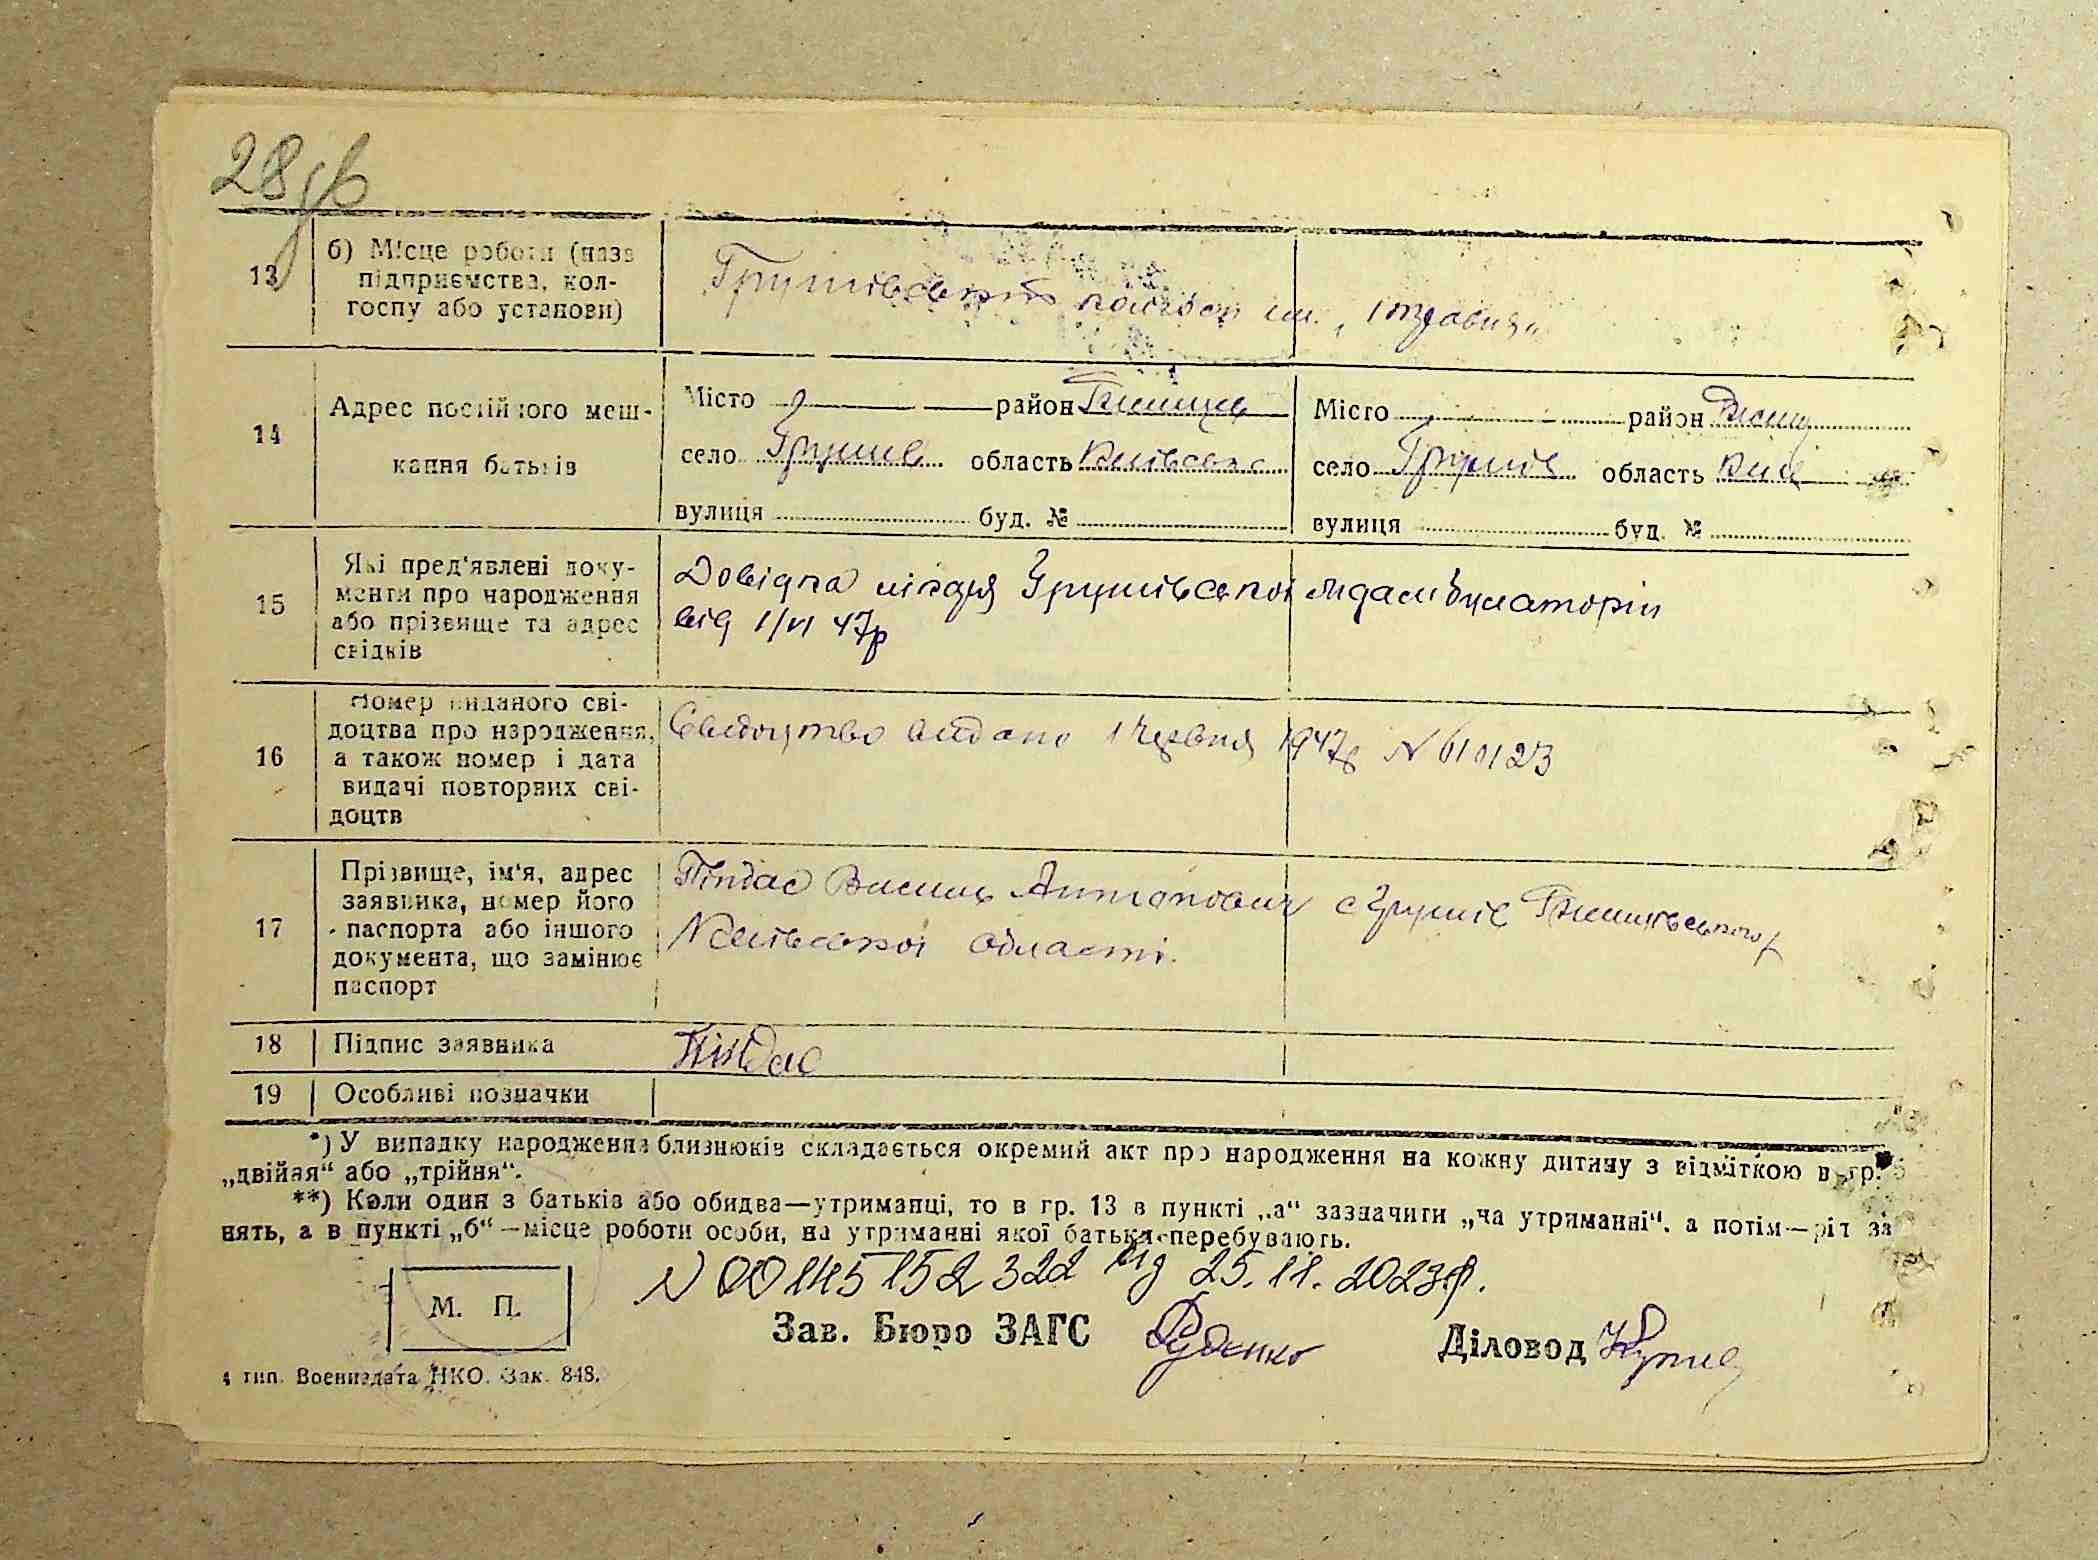 28 зв
13
б) Місце роботи (назв
підприємства, кол-
госпу або установи)
Грушівський колгосп ім. „1 травня„
14
Адрес постійного меш-
кання батьків
Місто район
село Грушів область Київська
вулиця буд. №
Місто район
село Грушів область Київ
вулиця буд. №
15
Які пред'явлені доку-
менти про народження
або прізвище та адрес
свідків
Довідка лікаря Грушівської
від 1/VI 47р
16
Номер виданого сві-
доцтва про народження,
а також номер і дата
видачі повторних сві-
доцтв
Свидоцтво видано 1 червня 1947р N 610123
17
Прізвище, ім'я, адрес
заявника, номер його
паспорта або іншого
документа, що замінює
паспорт
Піндас Антонович с Грушів
Київської області.
18
Підпис заявника
Піндас
19
Особливі позначки
*) У випадку народження близнюків складається окремий акт про народження на кожну дитину з відміткою в гр. 5
„двійня“ або „трійня“.
**) Коли один з батьків або обидва—утриманці, то в гр. 13 в пункті „а“ зазначити „на утриманні“, а потім—рід за
нять, а в пункті „б“—місце роботи особи, на утриманні якої батьки перебувають.
N 00145152322 від 25.11.2023р.
М. П.
Зав. Бюро ЗАГС Руденко Діловод
4 тип. Воениздата НКО. Зак. 848.